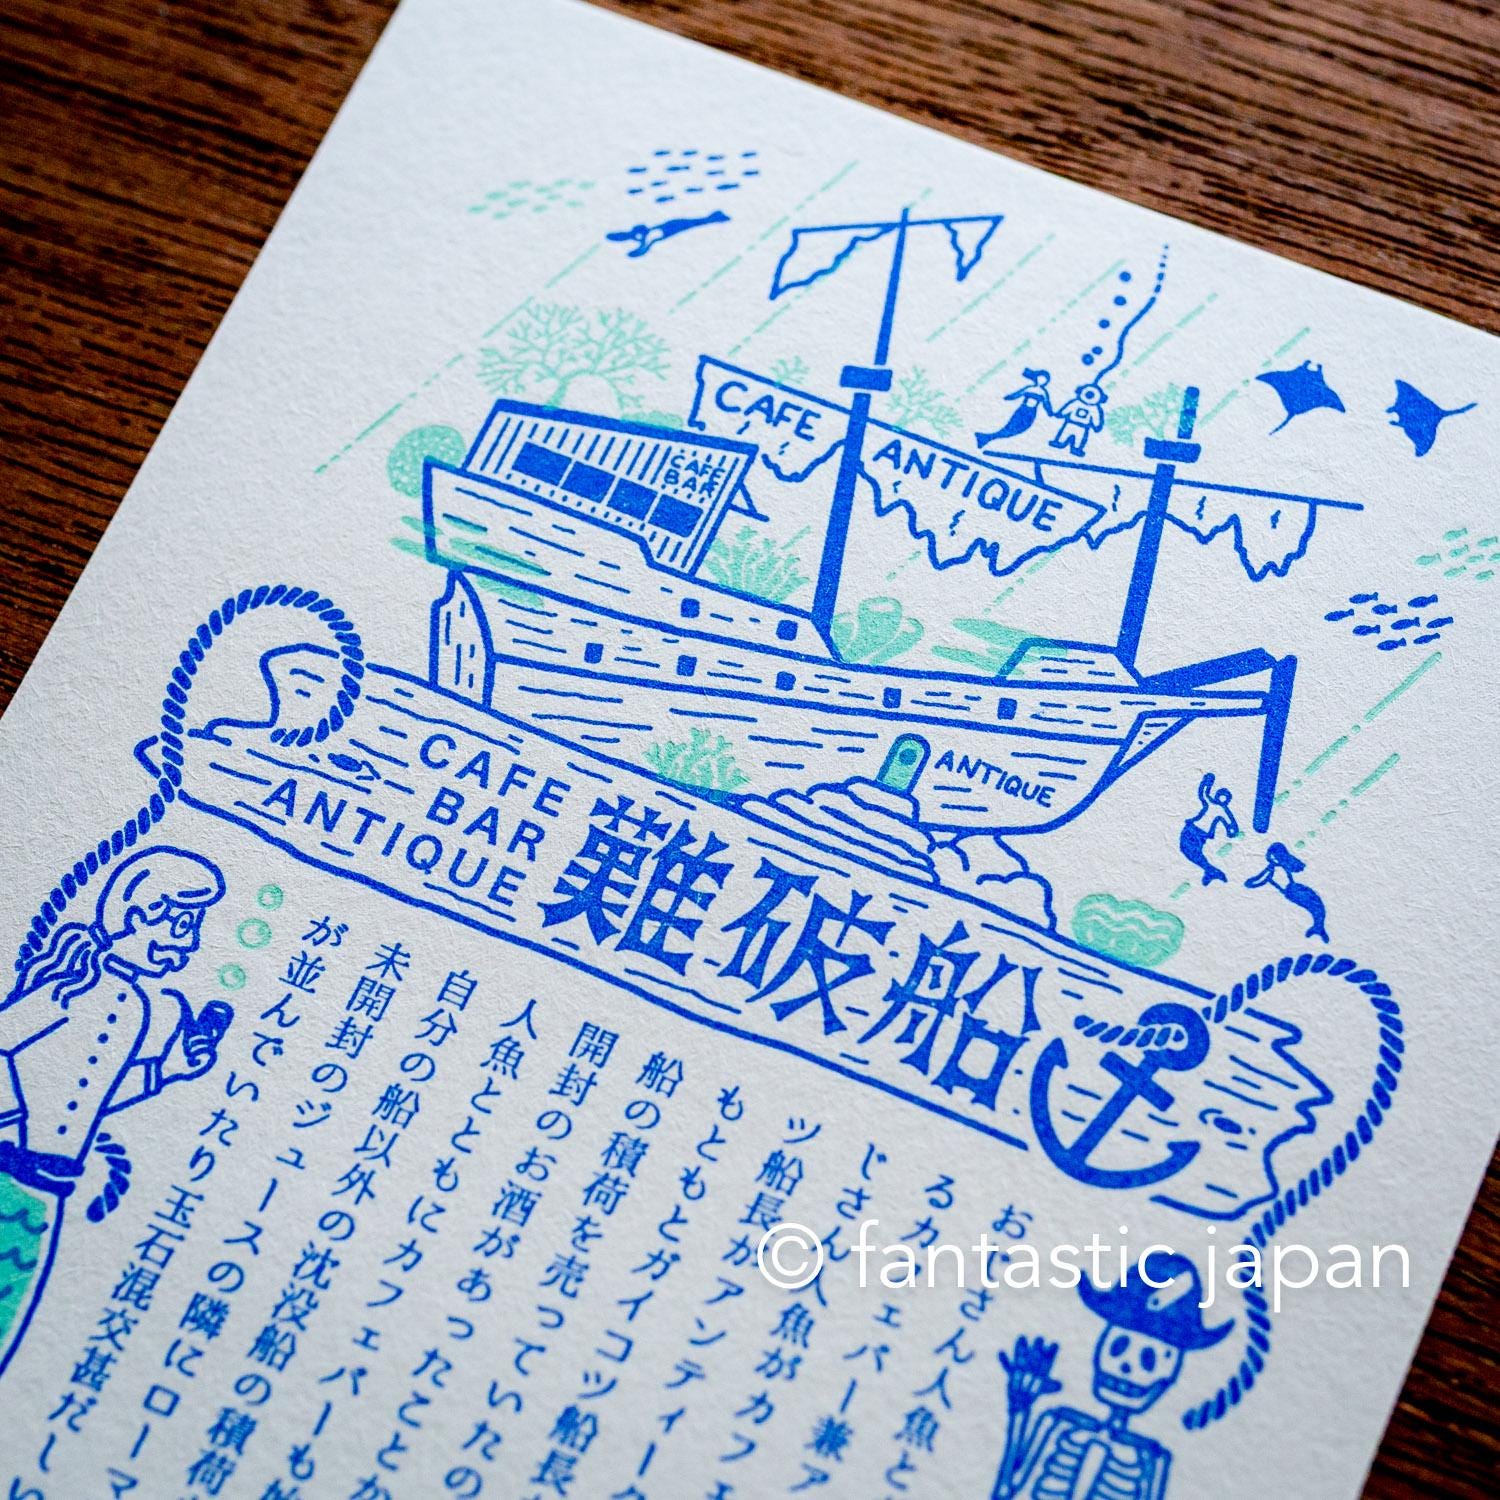 CAFE
ANTIQUE
CAFE
BAR
ANTIQUE
CAFE
BAR
ANTIQUE
難破船
おじさん人魚と
るカフェバー兼ア
じさん人魚がカフェ
ツ船長がアンティーク
もともとガイコツ船長
船の積荷を売っていたの
開封のお酒があったことか
人魚とともにカフェバーも
自分の船以外の沈没船の積荷
未開封のジュースの隣にローマ
が並んでいたり玉石混交甚だしい
© fantastic japan